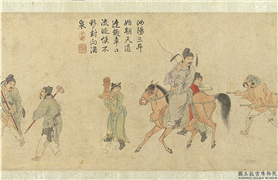 汝陽三斗
始朝天道
逢麴車口
流涎恨不
移封向酒
泉
國立故宮博物院